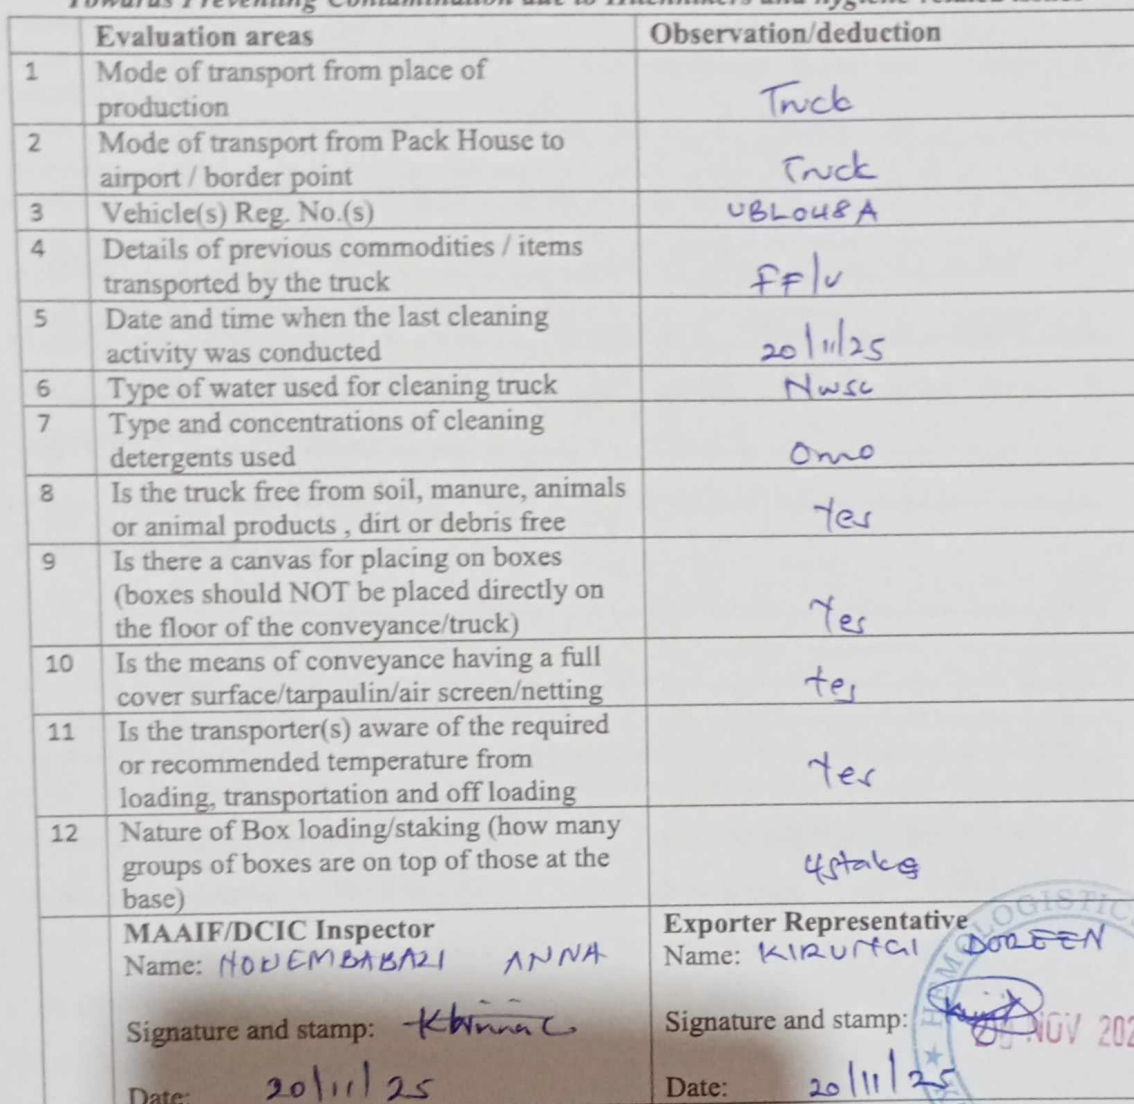 Towards Preventing Contamination due to Hitchhikers and hygiene-related issues
Evaluation areas Observation/deduction
1 Mode of transport from place of
production Truck
2 Mode of transport from Pack House to
airport / border point Truck
3 Vehicle(s) Reg. No.(s) UBL048A
4 Details of previous commodities / items
transported by the truck FF/V
5 Date and time when the last cleaning
activity was conducted 20/11/25
6 Type of water used for cleaning truck NWSC
7 Type and concentrations of cleaning
detergents used Omo
8 Is the truck free from soil, manure, animals
or animal products , dirt or debris free Yes
9 Is there a canvas for placing on boxes
(boxes should NOT be placed directly on
the floor of the conveyance/truck) Yes
10 Is the means of conveyance having a full
cover surface/tarpaulin/air screen/netting Yes
11 Is the transporter(s) aware of the required
or recommended temperature from
loading, transportation and off loading Yes
12 Nature of Box loading/staking (how many
groups of boxes are on top of those at the
base) 4stake
MAAIF/DCIC Inspector Exporter Representative
Name: ANNA Name: KIRUNGI DOREEN
Signature and stamp: Signature and stamp:
LOGISTICS
NOV 202
Date: 20/11/25 Date: 20/11/25